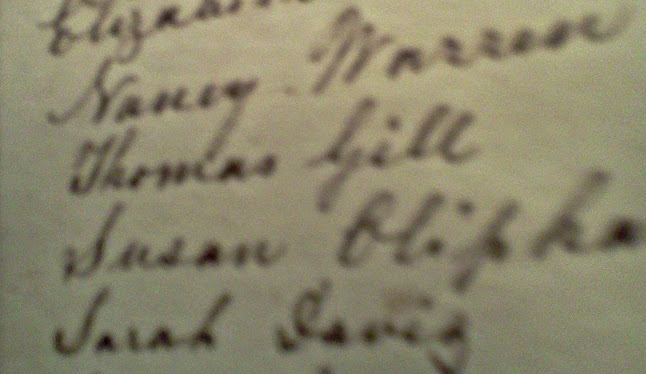 Nancy Warren
Thomas Gill
Susan Olipha
Sarah Davis